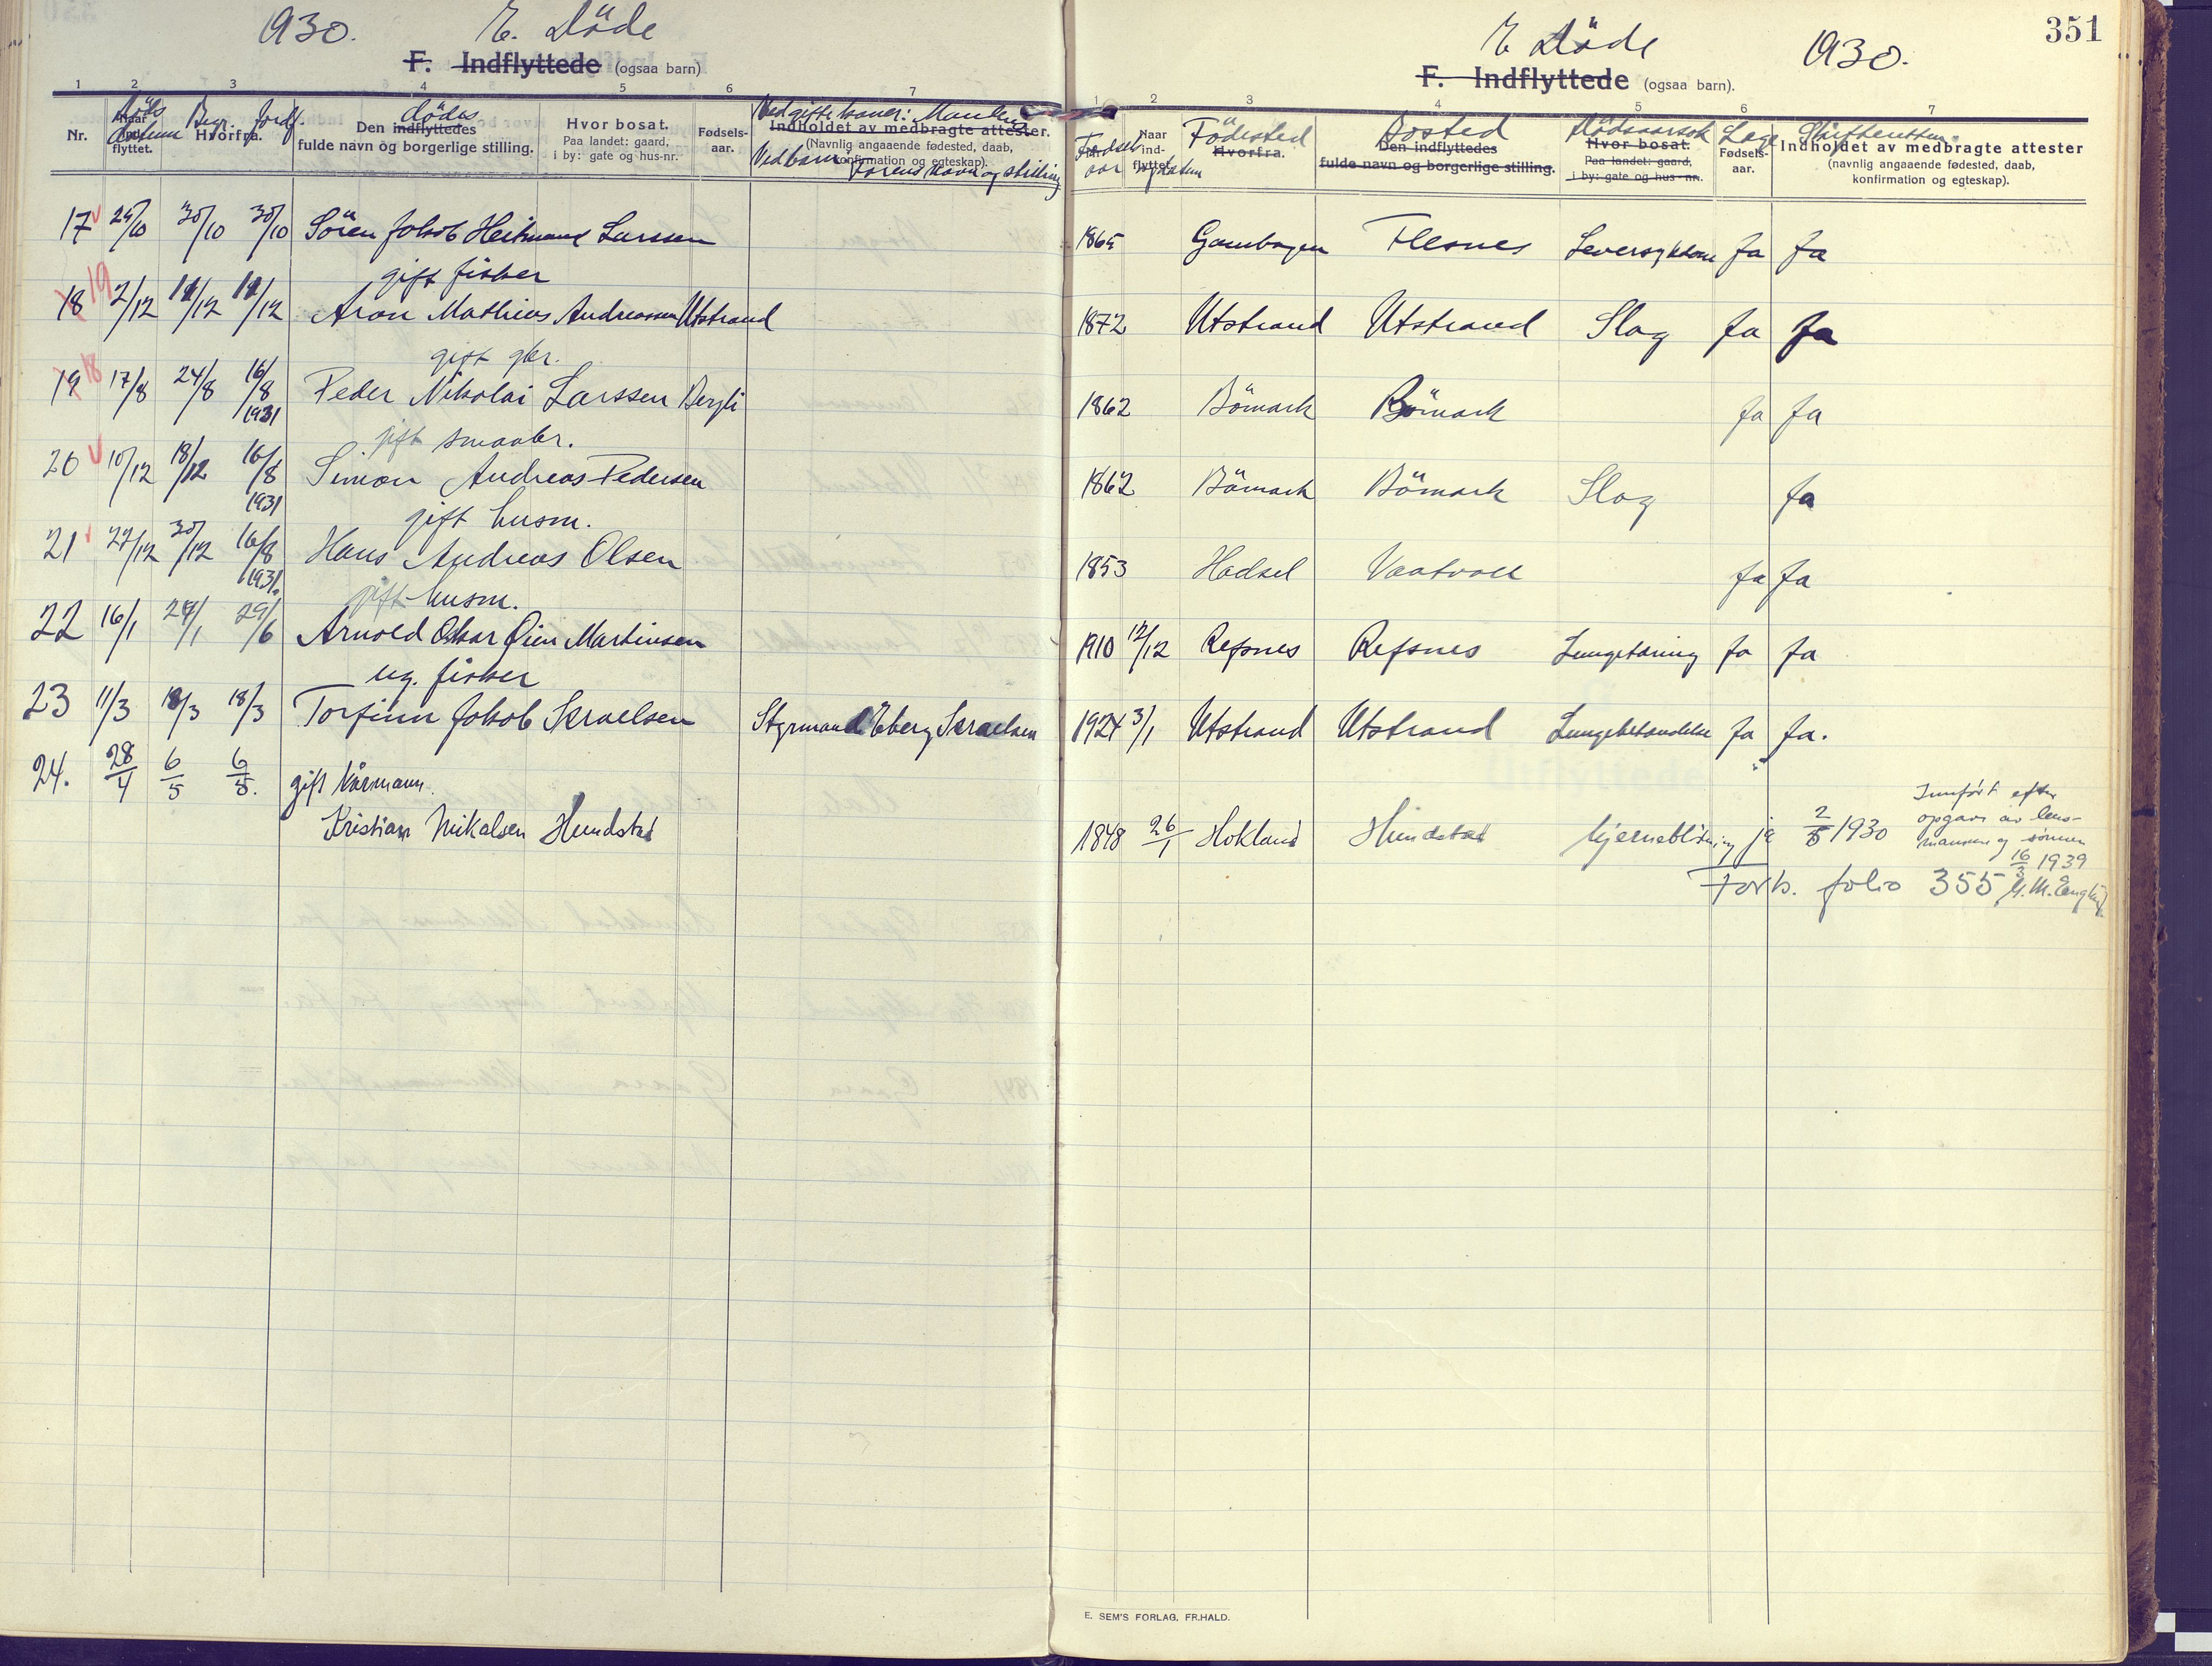 1930. E. Döde
F. Indflyttede (ogsaa barn)
1 2 3 4 5 6 7
Nr. Döds datum Naar indflyttet. Begr. Jordf. Hvorfra. Den indflyttedes dödes fulde navn og borgerlige stilling. Hvor bosat. Paa landet: gaard, i by: gate og hus-nr. Fødsels-aar. Ved gifte koner: Manden Indholdet av medbragte attester. (Navnlig angaaende fødested, daab, konfirmation og egteskap). Ved barn: Farens navn og stilling
17 29/10 30/10 30/10 Sören Jakob Heitmann Larssen
gift fisker
18 19 2/12 12/12 12/12 Aron Mathias Andreassen Utstrand
gift gbr.
19 18 17/8 24/8 16/8 1931 Peder Nikolai Larssen Bergli
gift smaabr.
20 10/12 18/12 16/8 1931 Simon Andreas Pedersen
gift husm.
21 22/12 30/12 16/8 1931. Hans Andreas Olsen
gift husm.
22 16/1 24/1 29/6 Arnold Oskar Öien Martinsen
ug. fisker
23 11/3 18/3 18/3 Torfinn Jakob Israelsen Styrmand Eberg Israelsen
24. 28/4 6/5 6/5. gift kårmann.
Kristian Mikalsen Hundstad
E Döde 1930. 351
F. Indflyttede (ogsaa barn).
1 2 3 4 5 6 7
Födsels aar Naar ind-flyttet og datum Födested Hvorfra. Bosted Den indflyttedes fulde navn og borgerlige stilling. Dödsaarsak Hvor bosat. Paa landet: gaard, i by: gate og hus-nr. Læge Fødsels-aar. Skifteretten Indholdet av medbragte attester (navnlig angaaende fødested, daab, konfirmation og egteskap).
1865 Gambogen Flesnes Leversykdom Ja Ja
1872 Utstrand Utstrand Slag Ja Ja
1862 Bömark Bömark Ja Ja
1862 Bömark Bömark Slag Ja
1853 Hadsel Vaatvoll Ja Ja
1910 12/12 Refsnes Refsnes Lungetæring Ja Ja
1924 3/1 Utstrand Utstrand Lungebetændelse Ja Ja.
1848 26/1 Hokland Hundstad hjerneblödning ja 2/5 1930 Innført efter
opgave av lens-
mannen og sønnen
16/3 1939
Forts. folio 355
E. SEM'S FORLAG, FR.HALD.